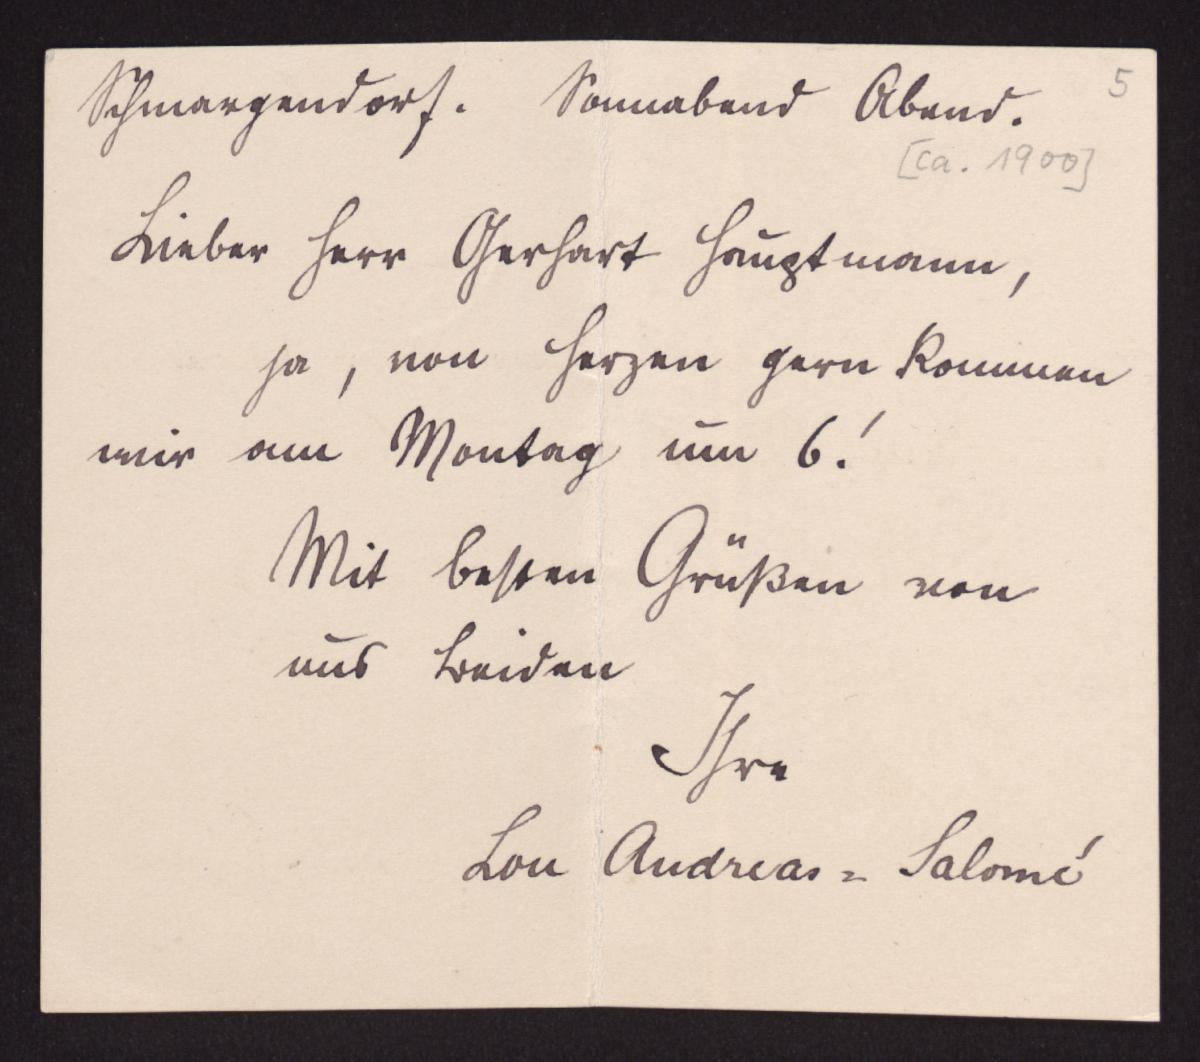 5
Schmargendorf. Sonnabend Abend.
[ca. 1900]
Lieber Herr Gerhart Hauptmann,
ja, von Herzen gern kommen
wir am Montag um 6!
Mit besten Grüßen von
uns beiden
Ihre
Lou Andreas=Salomé